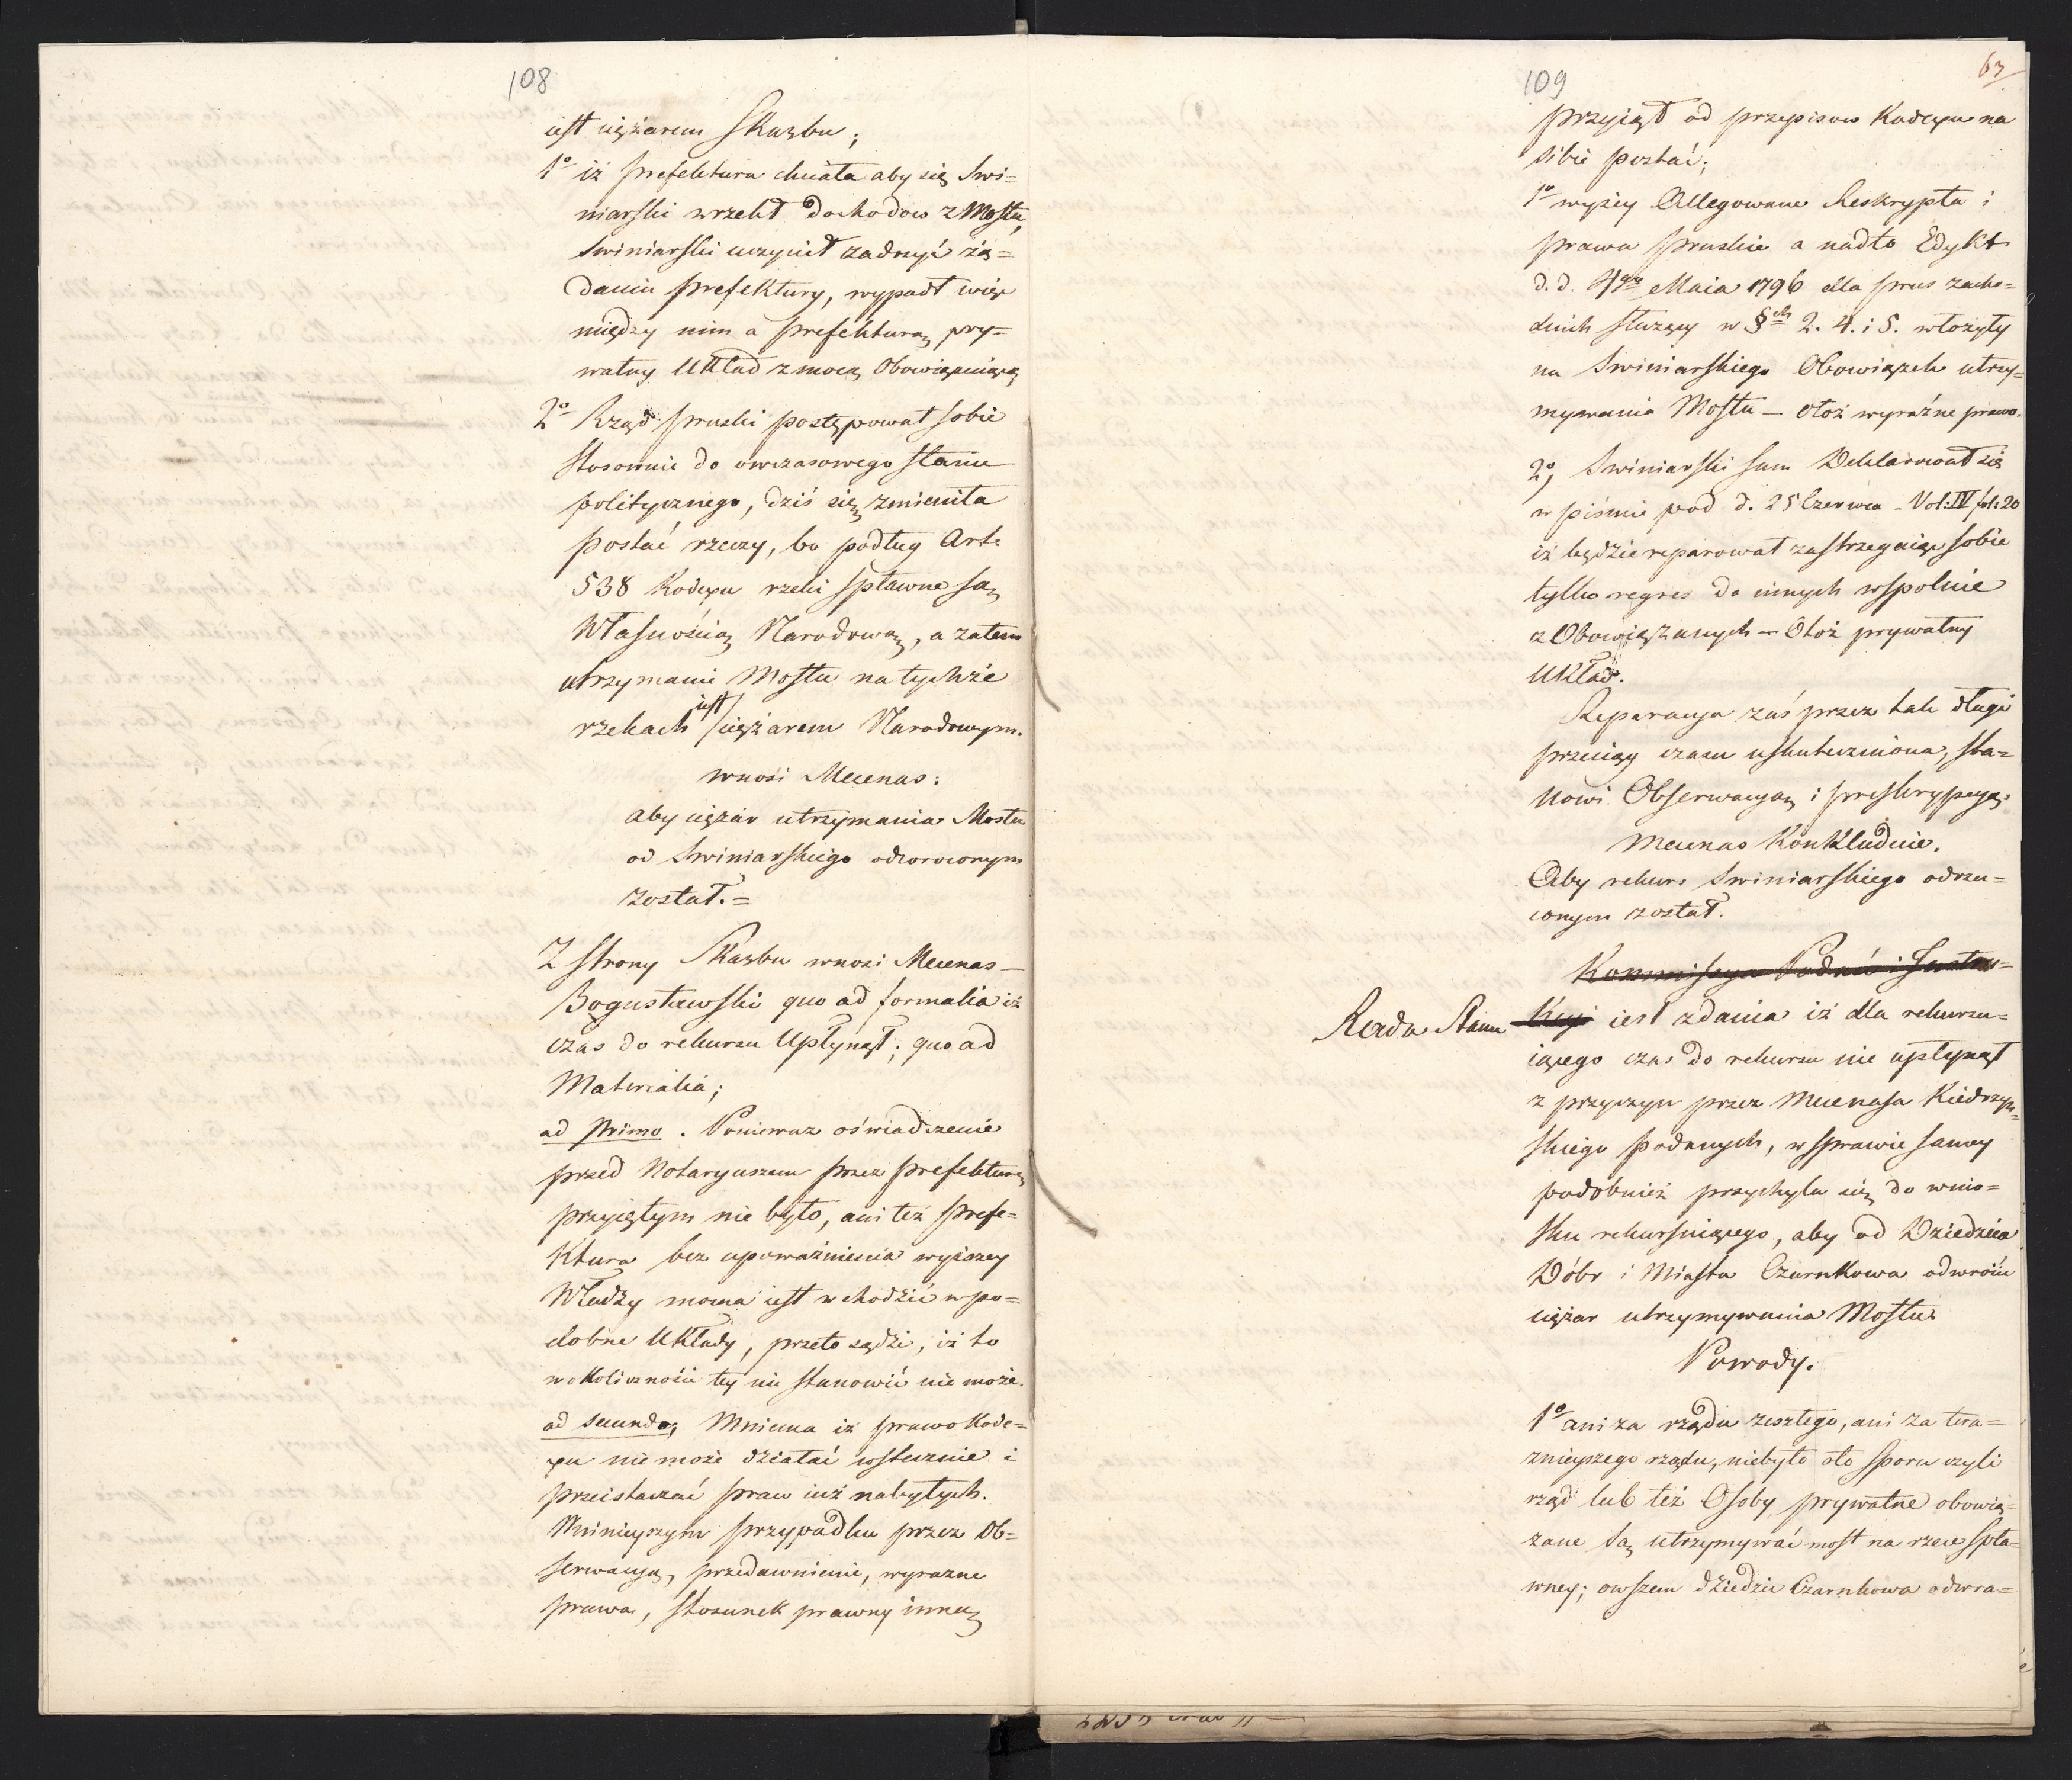 108
iest ciężarem Skarbu;
1o iż Prefektura chciała aby się Swi=
niarski wrzekł dochodow z Mostu,
Swiniarski uczynił zadosyć żą=
daniu Prefektury, wypadł więc
między nim a Prefekturą pry=
watny Układ z mocą Obowięzuiącą
2o Rząd Pruski postępował sobie
stosownie do owczasowego stanu
politycznego, dziś się zmieniła
postać rzeczy, bo podług Art.
538 Kodexu rzeki spławne są
Własnością Narodową, a zatem
utrzymanie Mostu na tychże
rzekach iest ciężarem Narodowym.
wnosi Mecenas:
aby ciężar utrzymania Mostu
od Swiniarskiego odwroconym
został.=
Z strony Skarbu wnosi Mecenas—
Bogusławski quo ad formalia iż
czas do rekursu Upłynął; quo ad
Materialia;
ad Primo. Ponieważ oświadczenie
przed Notaryuszem przez Prefekturę
przyiętym nie było, ani też Prefe=
ktura bez upoważnienia wyższey
Władzy mocna iest wchodzić w po=
dobne Układy, przeto sądzi, iż to
w okoliczności tey nic stanowić nie może.
ad secundo; Mniema iż prawo Kode=
xu nie może działać wstecznie i
przeistaczać praw iuż nabytych.
W ninieyszym przypadku przez Ob=
serwacyą, przedawnienie, wyrazne
prawa, stosunek prawny inną
109
63
przyiął od przepisow Kodexu na
siebie postać;
1o wyżey Allegowane Reskrypta i
prawa Pruskie a nadto Edykt
d. d. 4go Maia 1796 dla Prus zacho=
dnich służący w §ch 2. 4. i 5. włożyły
na Swiniarskiego Obowiązek utrzy=
mywania Mostu — otoż wyraźne prawo.
2o, Swiniarski sam Deklarował się
w piśmie pod d. 25 Czerwca - Vol: IV fol: 20
iż będzie reparował zastrzegaiąc sobie
tylko regres do innych wspolnie
z Obowiązanych — Otoż prywatny
Układ.
Reparacya zaś przez tak długi
przeciąg czasu uskuteczniona, sta=
nowi Obserwacyą i Preskrypcyą.
Mecenas Konkluduie.
Aby rekurs Swiniarskiego odrzu=
conym został.
Kommissya Podań i Instru=
Rada Stanu kcyi iest zdania iż dla rekursu=
iącego czas do rekursu nie upłynął
z przyczyn przez Mecenasa Kiedrzyń=
skiego podanych, w sprawie samey
podobnież przychyla się do wnio=
sku rekursuiącego, aby od Dziedzica
Dóbr i Miasta Czarnkowa odwrócić
ciężar utrzymywania Mostu.
Powody.
1o ani za rządu zeszłego, ani za tera=
znieyszego rządu, niebyło oto sporu czyli
rząd lub też Osoby prywatne obowią=
zane są utrzymywać most na rzece spła=
wney; owszem dziedzic Czarnkowa odwra=